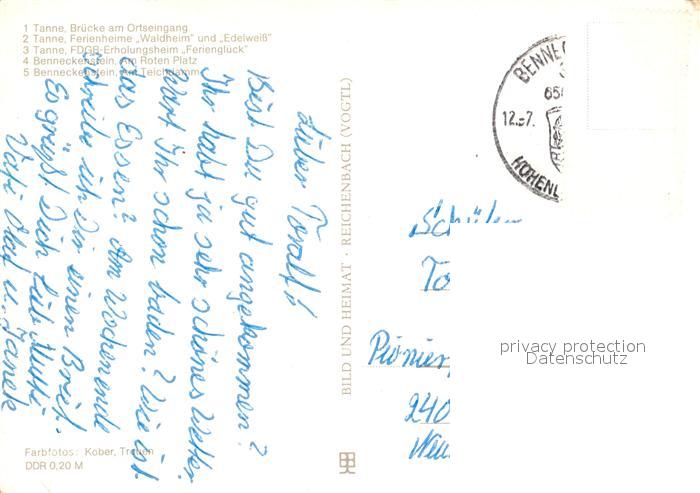 1 Tanne, Brücke am Ortseingang
2 Tanne, Ferienheime „Waldheim" und „Edelweiß"
3 Tanne, FDGB-Erholungsheim „Ferienglück"
4 Benneckenstein, Am Roten Platz
5 Benneckenstein, Am Teichdamm
Lieber Toralf!
Bist Du gut angekommen?
Ihr habt ja sehr schönes Wetter.
Wart Ihr schon baden? Wie ist
das Essen? Am Wochenende
schreibe ich Dir einen Brief.
Es grüßt Dich lieb Mutti,
Vati Olaf u. Janek
Farbfotos: Kober, Treuen
DDR 0,20 M
BILD UND HEIMAT · REICHENBACH (VOGTL)
BENNEC
12.-7.
HOHENL
Schüler
To
Pionier
240
privacy protection
Datenschutz